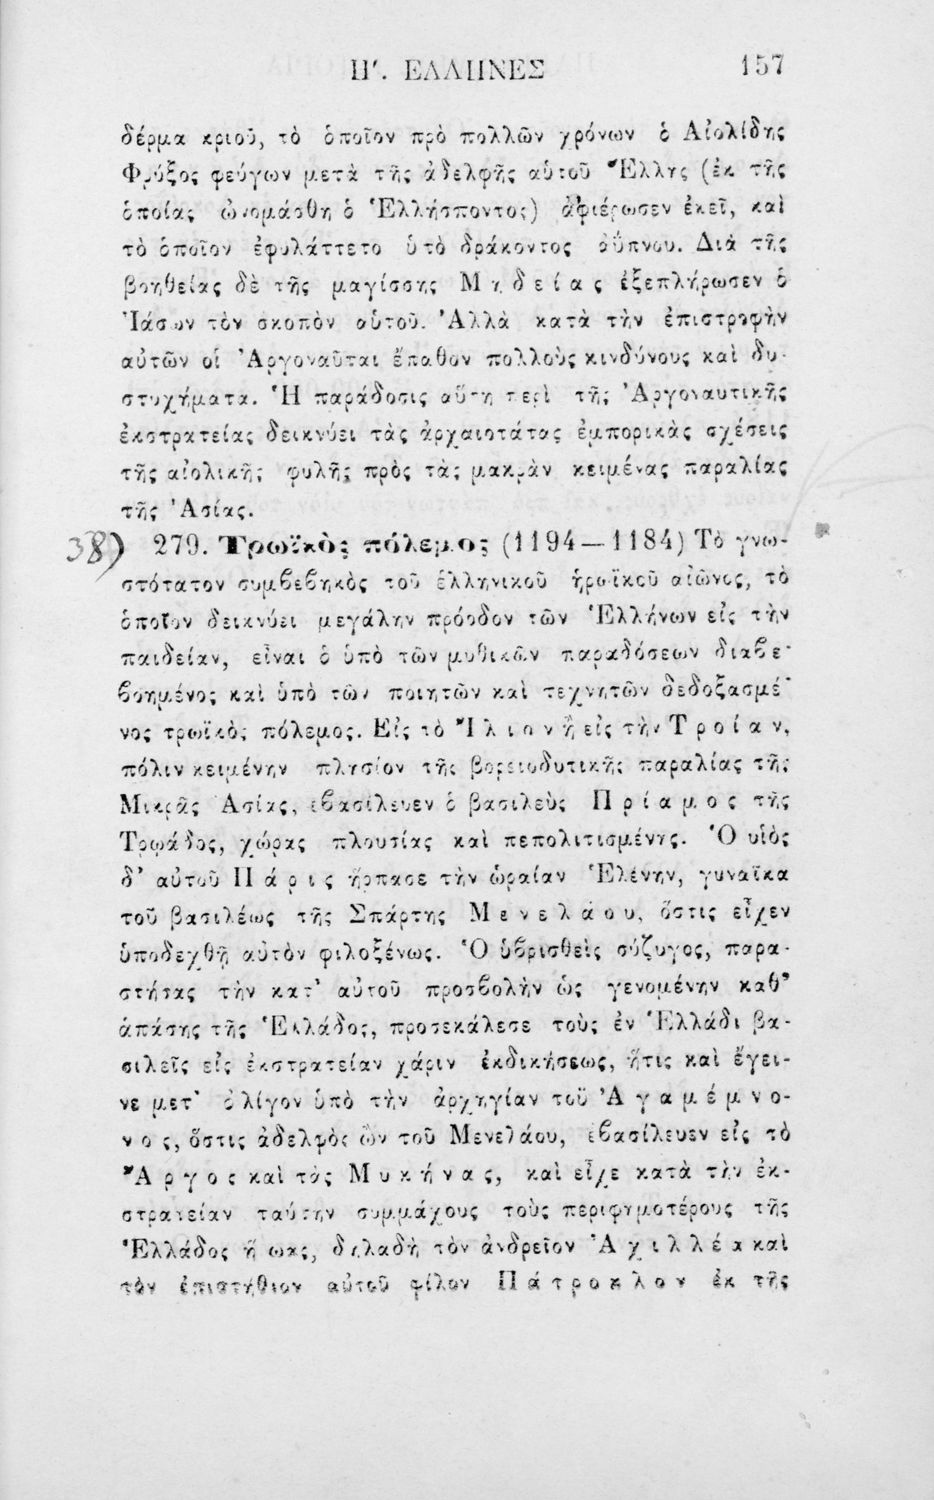 Η'. ΕΛΛΗΝΕΣ 157
δέρμα κριοῦ, τὸ ὁποῖον πρὸ πολλῶν χρόνων ὁ Αἰολίδης
Φρύξος φεύγων μετὰ τῆς ἀδελφῆς αὑτοῦ Ἕλλης (ἐκ τῆς
ὁποίας ὠνομάσθη ὁ Ἑλλήσποντος) ἀφιέρωσεν ἐκεῖ, καὶ
τὸ ὁποῖον ἐφυλάττετο ὑπὸ δράκοντος ἀΰπνου. Διὰ τῆς
βοηθείας δὲ τῆς μαγίσσης Μηδείας ἐξεπλήρωσεν ὁ
Ἰάσων τὸν σκοπὸν αὑτοῦ. Ἀλλὰ κατὰ τὴν ἐπιστροφὴν
αὐτῶν οἱ Ἀργοναῦται ἔπαθον πολλοὺς κινδύνους καὶ δυ-
στυχήματα. Ἡ παράδοσις αὕτη περὶ τῆς Ἀργοναυτικῆς
ἐκστρατείας δεικνύει τὰς ἀρχαιοτάτας ἐμπορικὰς σχέσεις
τῆς αἰολικῆς φυλῆς πρὸς τὰς μακρὰν κειμένας παραλίας
τῆς Ἀσίας.
38) 279. Τρωϊκὸς πόλεμος (1194—1184) Τὸ γνω-
στότατον συμβεβηκὸς τοῦ ἑλληνικοῦ ἡρωϊκοῦ αἰῶνος, τὸ
ὁποῖον δεικνύει μεγάλην πρόοδον τῶν Ἑλλήνων εἰς τὴν
παιδείαν, εἶναι ὁ ὑπὸ τῶν μυθικῶν παραδόσεων διαβε-
βοημένος καὶ ὑπὸ τῶν ποιητῶν καὶ τεχνητῶν δεδοξασμέ-
νος τρωϊκὸς πόλεμος. Εἰς τὸ Ἴλιον ἢ εἰς τὴν Τροίαν,
πόλιν κειμένην πλησίον τῆς βορειοδυτικῆς παραλίας τῆς
Μικρᾶς Ἀσίας, ἐβασίλευεν ὁ βασιλεὺς Πρίαμος τῆς
Τρῳάδος, χώρας πλουσίας καὶ πεπολιτισμένης. Ὁ υἱὸς
δ' αὐτοῦ Πάρις ἥρπασε τὴν ὡραίαν Ἑλένην, γυναῖκα
τοῦ βασιλέως τῆς Σπάρτης Μενελάου, ὅστις εἶχεν
ὑποδεχθῆ αὐτὸν φιλοξένως. Ὁ ὑβρισθεὶς σύζυγος, παρα-
στήσας τὴν κατ' αὐτοῦ προσβολὴν ὡς γενομένην καθ'
ἁπάσης τῆς Ἑλλάδος, προσεκάλεσε τοὺς ἐν Ἑλλάδι βα-
σιλεῖς εἰς ἐκστρατείαν χάριν ἐκδικήσεως, ἥτις καὶ ἔγει-
νε μετ' ὀλίγον ὑπὸ τὴν ἀρχηγίαν τοῦ Ἀγαμέμνο-
νος, ὅστις ἀδελφὸς ὢν τοῦ Μενελάου, ἐβασίλευεν εἰς τὸ
Ἄργος καὶ τὰς Μυκήνας, καὶ εἶχε κατὰ τὴν ἐκ-
στρατείαν ταύτην συμμάχους τοὺς περιφημοτέρους τῆς
Ἑλλάδος ἥρωας, δηλαδὴ τὸν ἀνδρεῖον Ἀχιλλέα καὶ
τὸν ἐπιστήθιον αὐτοῦ φίλον Πάτροκλον ἐκ τῆς